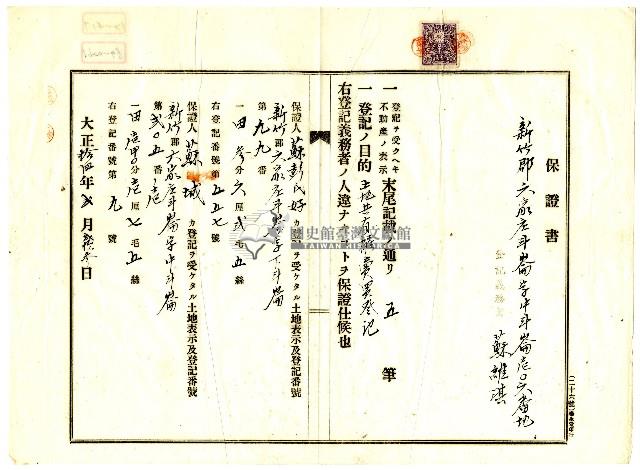 保證書
新竹郡六家庄斗崙字中斗崙壱〇六番地
登記義務者
蘇維淇
一 登記ヲ受クヘキ不動產ノ表示 末尾記載ノ通リ 五 筆
一 登記ノ目的 土地共有持分賣買登記
右登記義務者ノ人違ナキコトヲ保證仕候也
保證人 蘇彭氏好 カ登記ヲ受ケタル土地表示及登記番號
新竹郡六家庄斗崙字下斗崙
第九九番
一 田 參分六厘弐毛五絲
右登記番號第五五七號
保證人 蘇城 カ登記ヲ受ケタル土地表示及登記番號
新竹郡六家庄斗崙字中斗崙
第弐〇五番ノ壱
一 田 壱甲 分壱厘七毛五絲
右登記番號第 九 號
大正拾四年弐月 日
國史館臺灣文獻館
TAIWAN HISTORICA